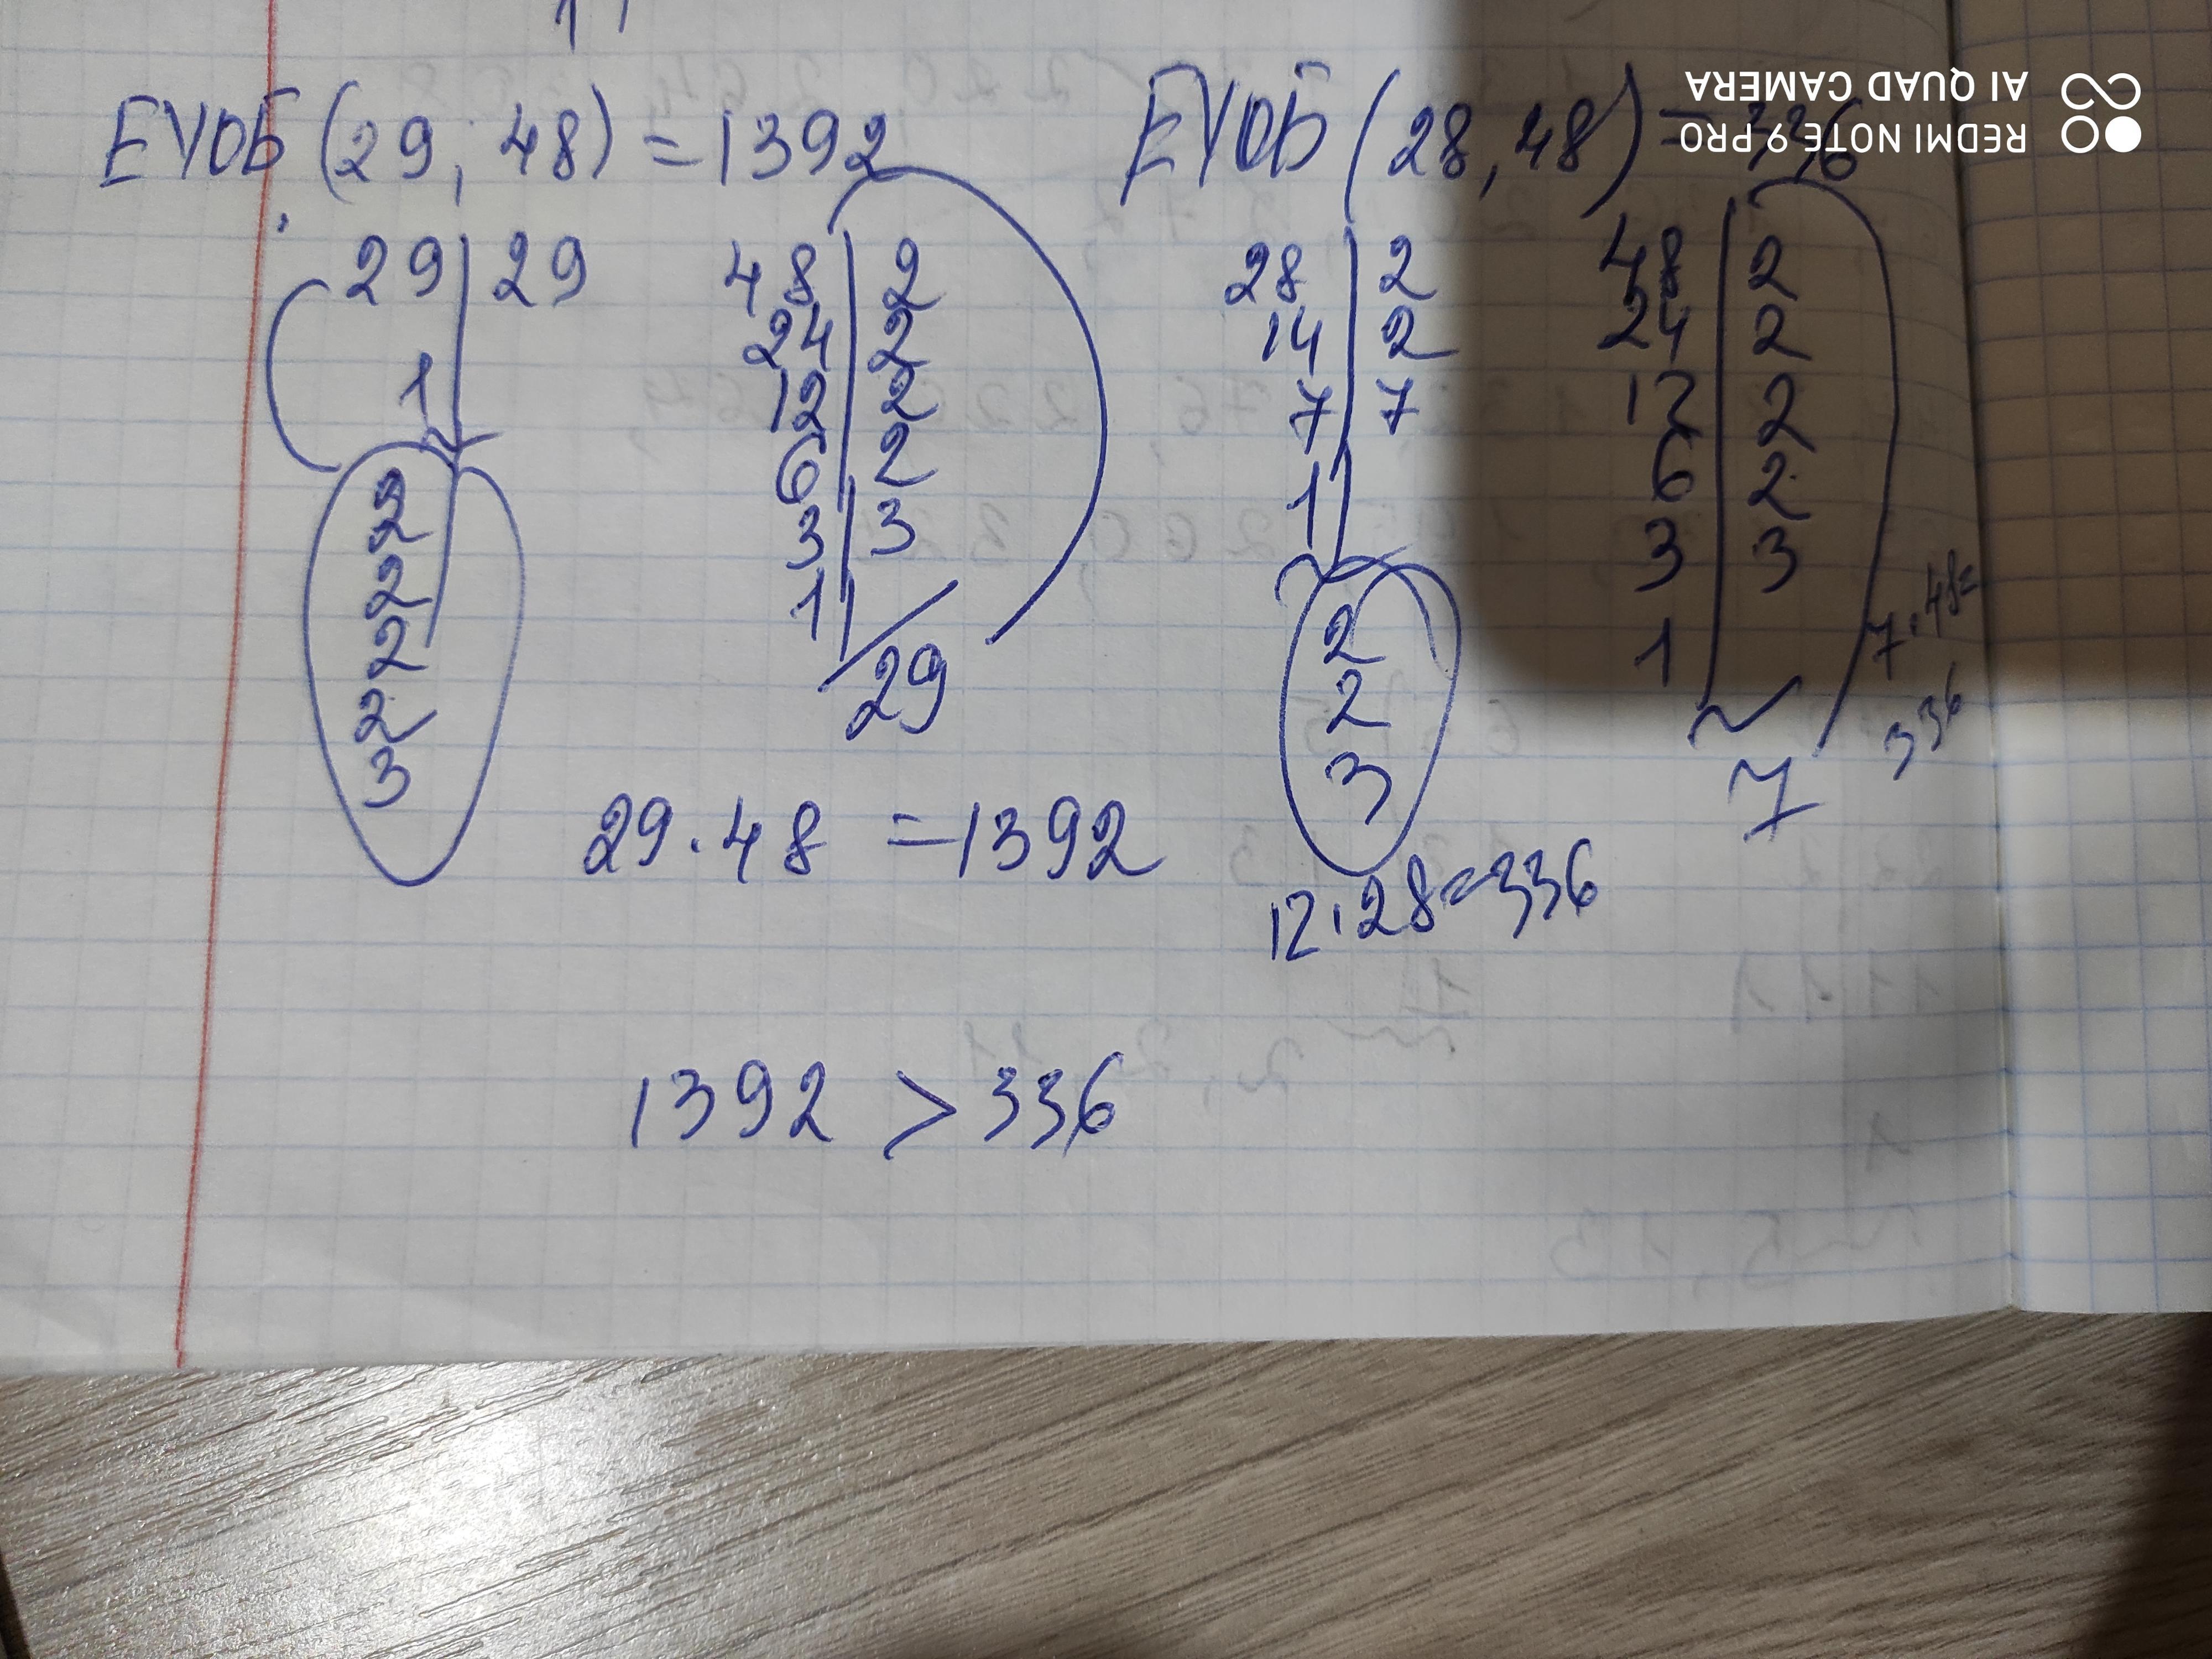 ЕУОБ (29, 48) = 1392
29 | 29
1
2
2
2
2
3
48 | 2
24 | 2
12 | 2
6 | 2
3 | 3
1
29
29 · 48 = 1392
ЕУОБ (28, 48) = 336
28 | 2
14 | 2
7 | 7
1
2
2
3
12 · 28 = 336
48 | 2
24 | 2
12 | 2
6 | 2
3 | 3
1
7
7 · 48 =
336
1392 > 336
REDMI NOTE 9 PRO
AI QUAD CAMERA